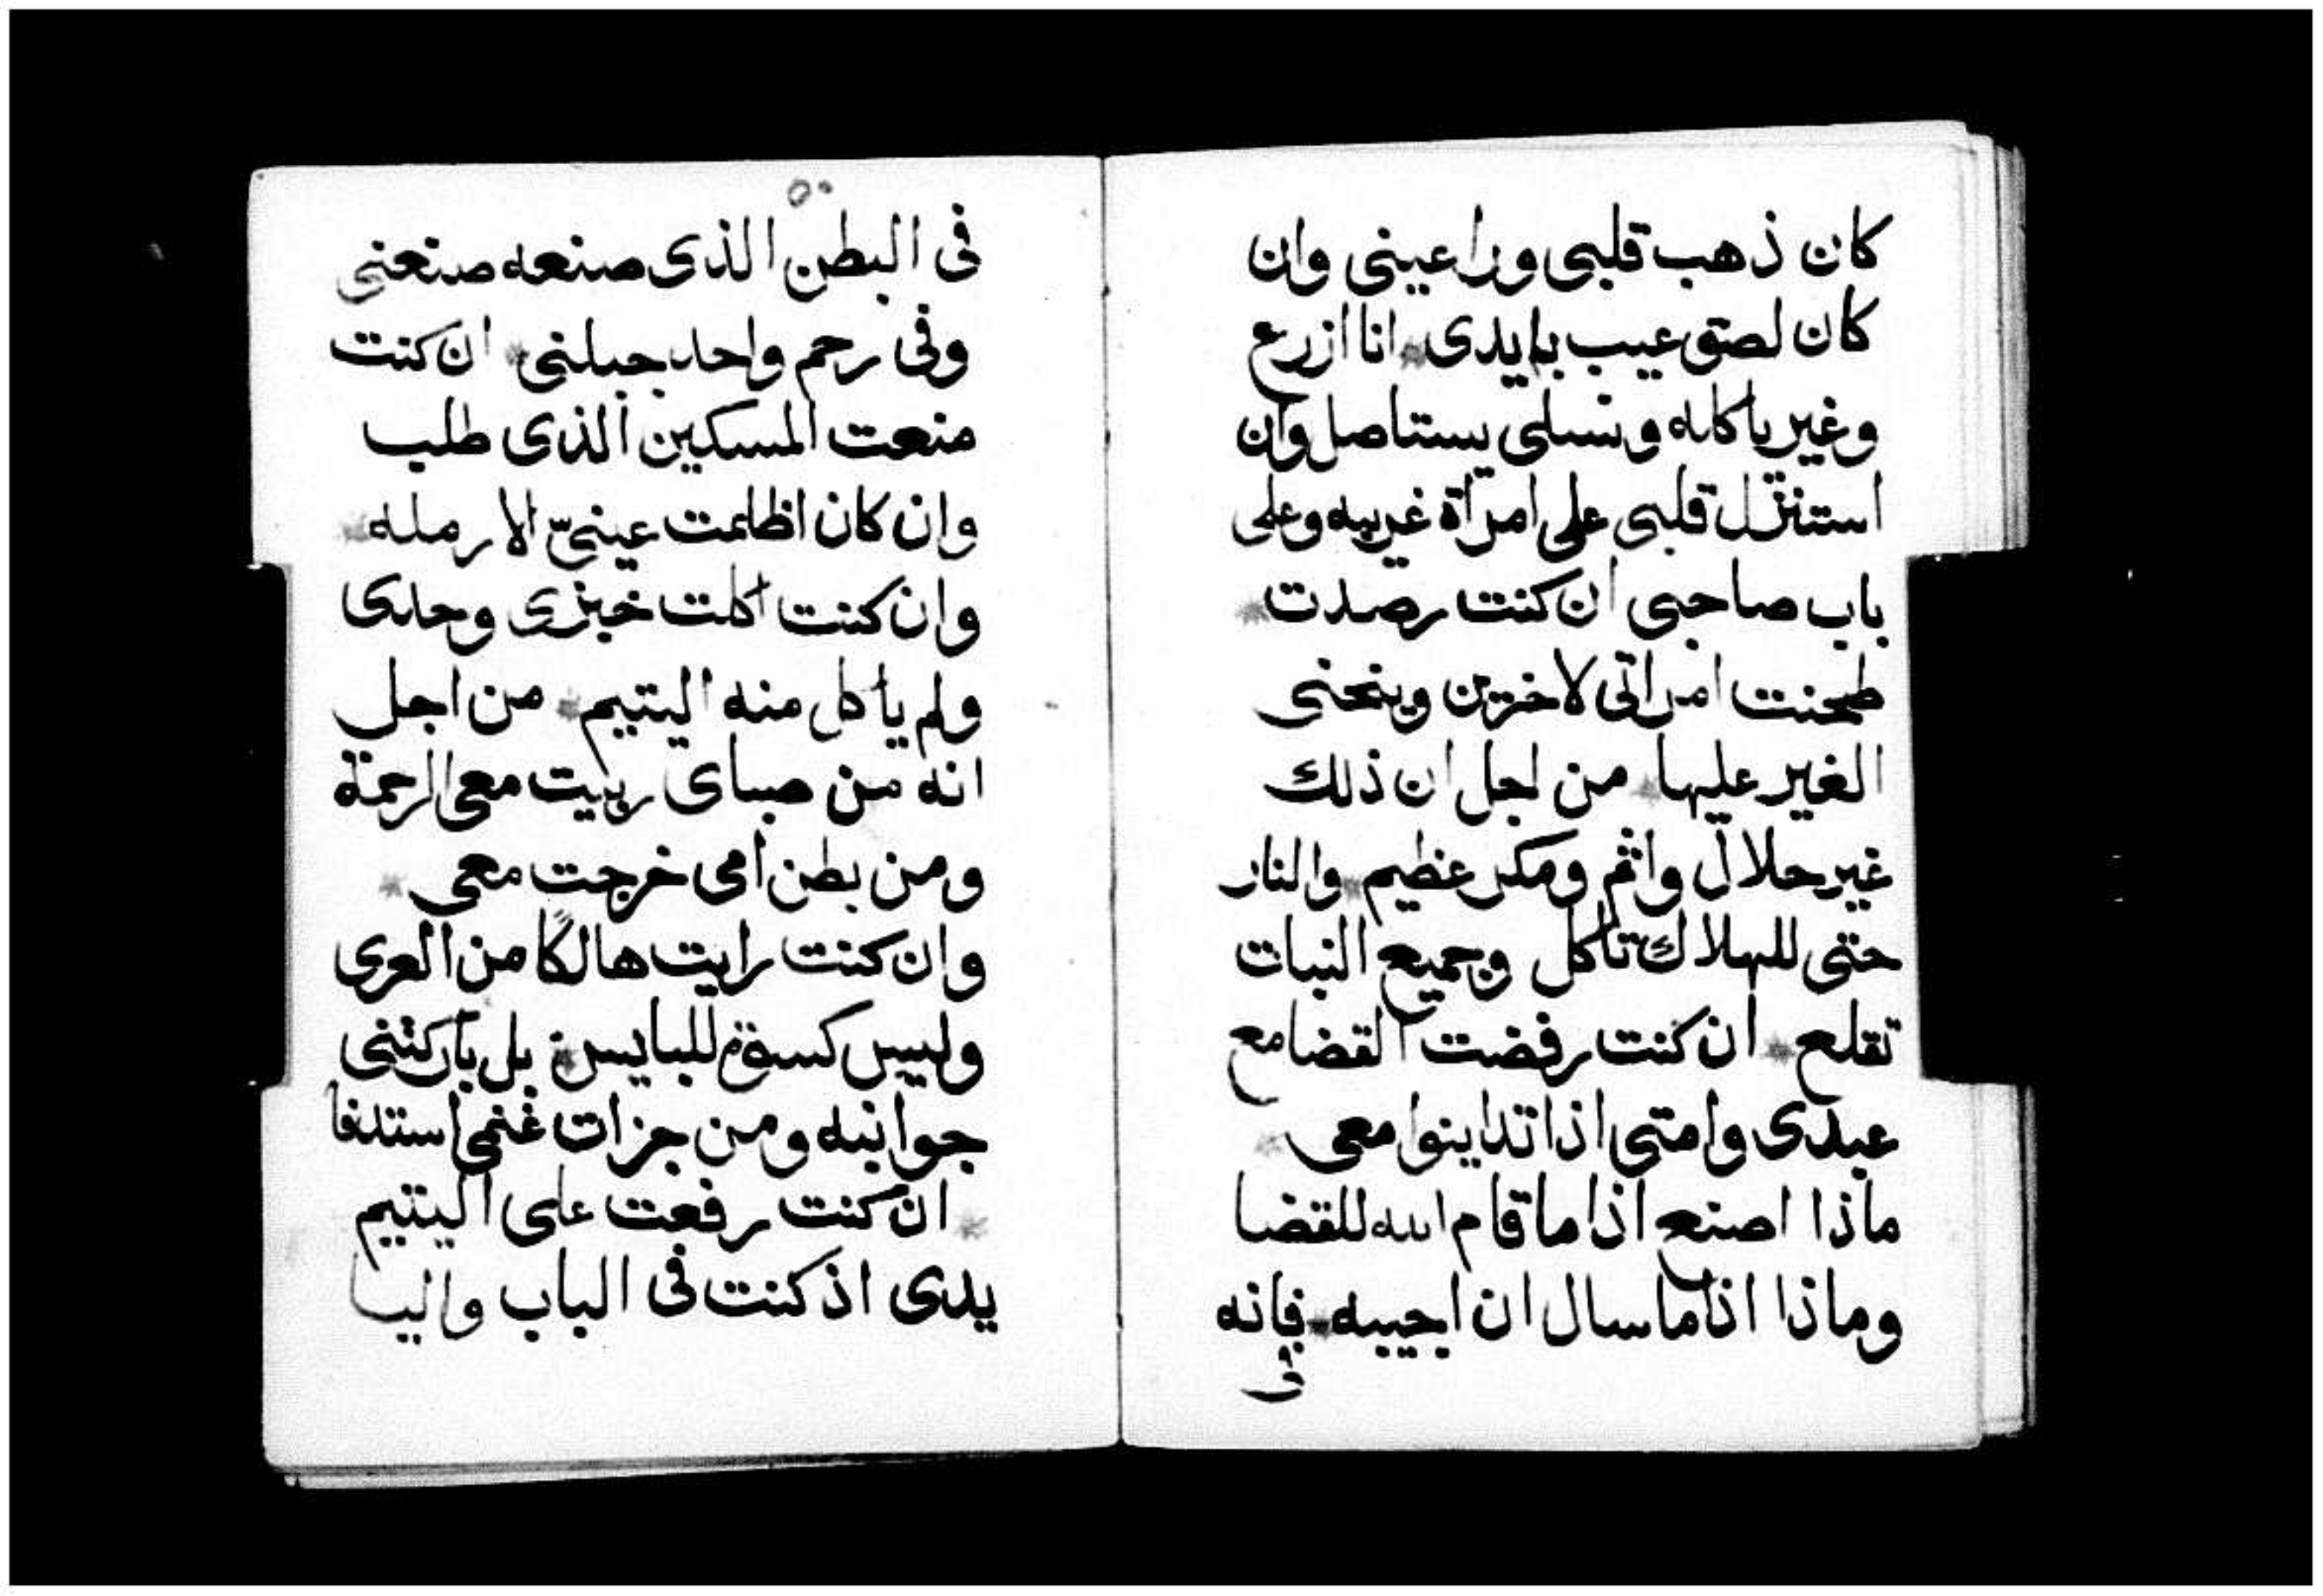 كان ذهب قلبى ورا عينى وان
كان لصق عيب بايدى انا ازرع
وغير ياكله ونسلى يستاصل وان
استنزل قلبى على امراة غريبه وعلى
باب صاحبى ان كنت رصدت
طحنت امراتى لاخرين وينحنى
الغير عليها من اجل ان ذلك
غير حلال واثم ومكر عظيم والنار
حتى للهلاك تاكل وجميع النبات
تقلع ان كنت رفضت القضا مع
عبدى وامتى اذا تداينوا معى
ماذا اصنع اذا ما قام الله للقضا
وماذا اذا ما سال ان اجيبه فانه
فى
٥٠
فى البطن الذى صنعه صنعنى
وفى رحم واحد جبلنى ان كنت
منعت المسكين الذى طلب
وان كان اظلمت عينىّ الارمله
وان كنت اكلت خبزى وحدى
ولم ياكل منه اليتيم من اجل
انه من صباى ربيت معى الرحمة
ومن بطن امى خرجت معى
وان كنت رايت هالكًا من العرى
وليس كسوة للبايس بل باركتنى
جوانبه ومن جزات غنمى استدفا
ان كنت رفعت على اليتيم
يدى اذ كنت فى الباب واليا